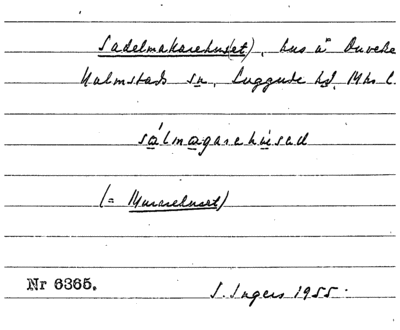 Sadelmakarehus(et), hus å Duveke
Halmstads sn, Luggude hd, Mhs l.
sálmagarehúsad
(= Murarehuset)
Nr 6365.
I. Ingers 1955.